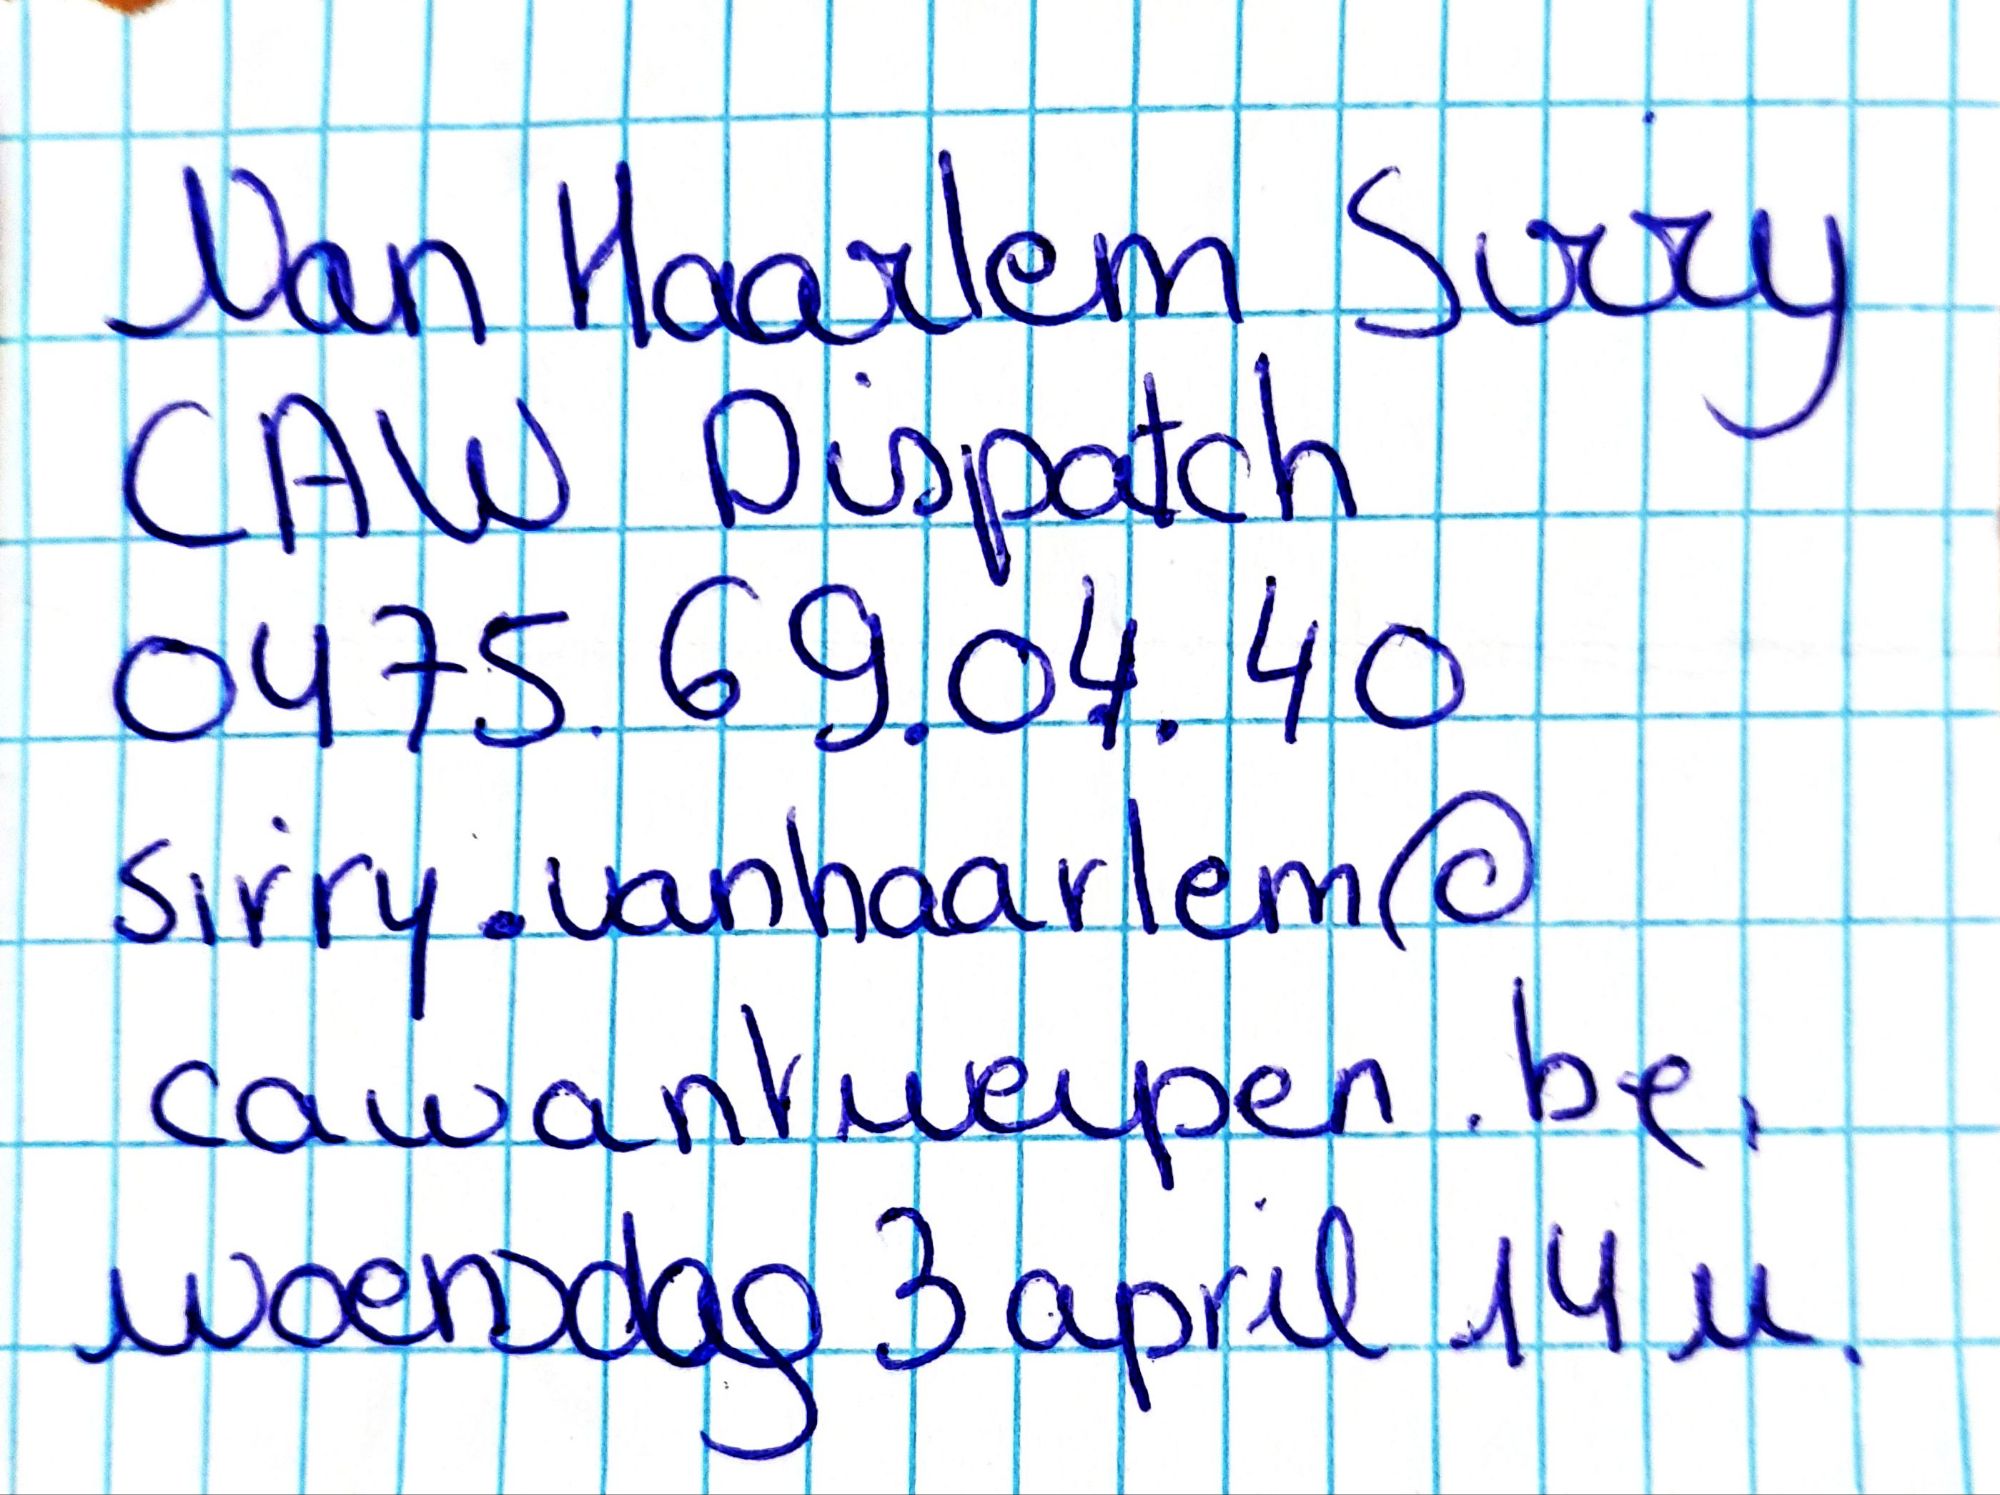 Van Haarlem Sirry
CAW Dispatch
0475.69.04.40
sirry.vanhaarlem@
cawantwerpen.be.
woensdag 3 april 14 u.